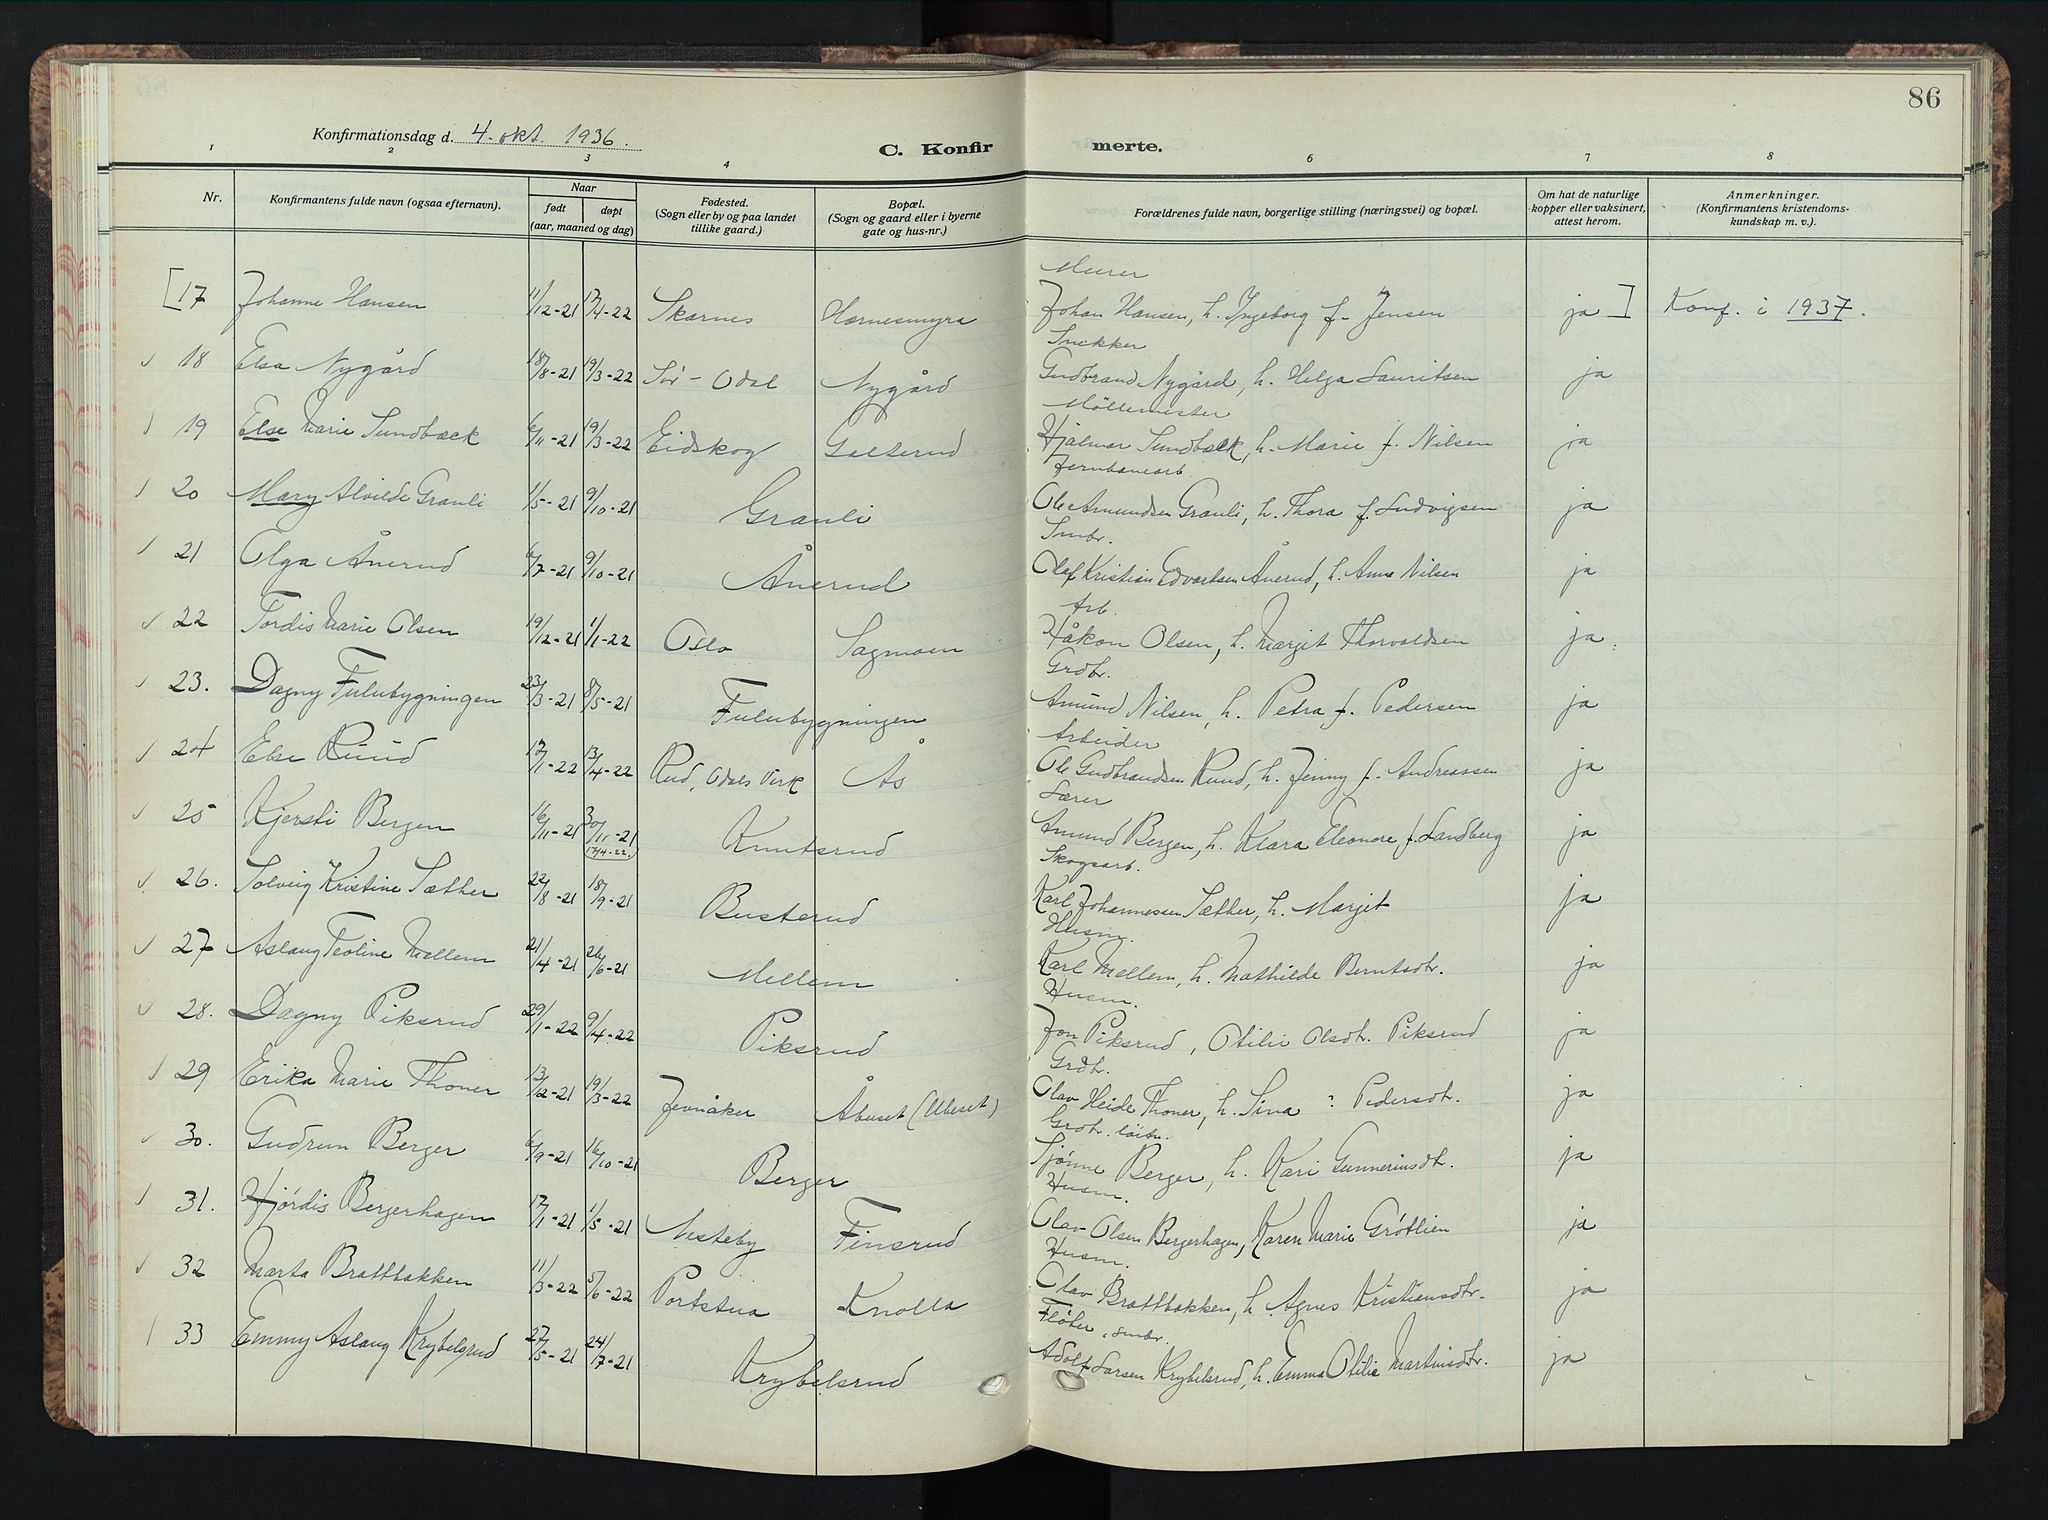 86
Konfirmationsdag d. 4. okt. 1936.
C. Konfir merte.
1 2 3 4 6 7 8
Nr.
Konfirmantens fulde navn (ogsaa efternavn).
Naar
født døpt
(aar, maaned og dag)
Fødested.
(Sogn eller by og paa landet
tillike gaard.)
Bopæl.
(Sogn og gaard eller i byerne
gate og hus-nr.)
Forældrenes fulde navn, borgerlige stilling (næringsvei) og bopæl.
Om hat de naturlige
kopper eller vaksinert,
attest herom.
Anmerkninger.
(Konfirmantens kristendoms-
kundskap m. v.).
Murer
[17 Johanne Hansen 11/12-21 17/4-22 Skarnes Hornesmyra Johan Hansen, h. Ingeborg f. Jensen ja ] Konf. i 1937.
Snekker
18 Elsa Nygård 18/8-21 19/3-22 Sør-Odal Nygård Gudbrand Nygård, h. Helga Lauritsen ja
Möllemester
19 Else Marie Sundbæck 6/11-21 19/3-22 Eidskog Galterud Hjalmar Sundbæck, h. Marie f. Nilsen ja
Jernbanearb.
20 Mary Alvilde Granli 1/5-21 9/10-21 Granli Ole Amundsen Granli, h. Thora f. Ludvigsen ja
Smbr.
21 Olga Ånerud 6/7-21 9/10-21 Ånerud Olaf Kristian Edvartsen Ånerud, h. Anna Nilsen ja
Arb.
22 Tordis Marie Olsen 19/12-21 1/1-22 Oslo Sagmoen Håkon Olsen, h. Margit Thorvaldsen ja
Grdbr.
23. Dagny Fulubygningen 23/3-21 8/5-21 Fulubygningen Amund Nilsen, h. Petra f. Pedersen ja
Arbeider
24 Else Ruud 17/1-22 13/4-22 Rud, Odals Verk Ås Ole Gudbrandsen Ruud, h. Jenny f. Andreassen ja
Lærer
25 Kjersti Bergen 16/11-21 30/11-21 Knutsrud Amund Bergen, h. Klara Eleonore f. Sandberg ja
(17/4-22.)
Skogsarb.
26. Solveig Kristine Sæther 22/8-21 18/9-21 Busterud Karl Johannessen Sæther, h. Margit ja
Husm.
27 Aslaug Teoline Mellem 21/4-21 26/6-21 Mellem Karl Mellem, h. Mathilde Berntsdtr. ja
Husm.
28. Dagny Piksrud 29/1-22 9/4-22 Piksrud Jon Piksrud, Otilie Olsdtr. Piksrud ja
Grdbr.
29 Erika Marie Thoner 13/12-21 19/3-22 Jevnåker Åbuset (Ulset) Olav Heide Thoner, h. Sina Pedersdtr. ja
Grdbr. løitn.
30. Gudrun Berger 6/9-21 16/10-21 Berger Tjønne Berger, h. Kari Gunneriusdtr. ja
Husm.
31. Hjördis Bergerhagen 17/1-21 1/5-21 Nesteby Finsrud Olav Olsen Bergerhagen, Karen Marie Gröttlien ja
Husm.
32 Marta Brattbakken 11/3-22 5/6-22 Portstua Knolla Olav Brattbakken, h. Agnes Kristiansdtr. ja
Fløter, smbr.
33 Emmy Aslaug Krybelsrud 27/5-21 24/7-21 Krybelsrud Adolf Larsen Krybelsrud, h. Emma Otilie Martinsdtr. ja